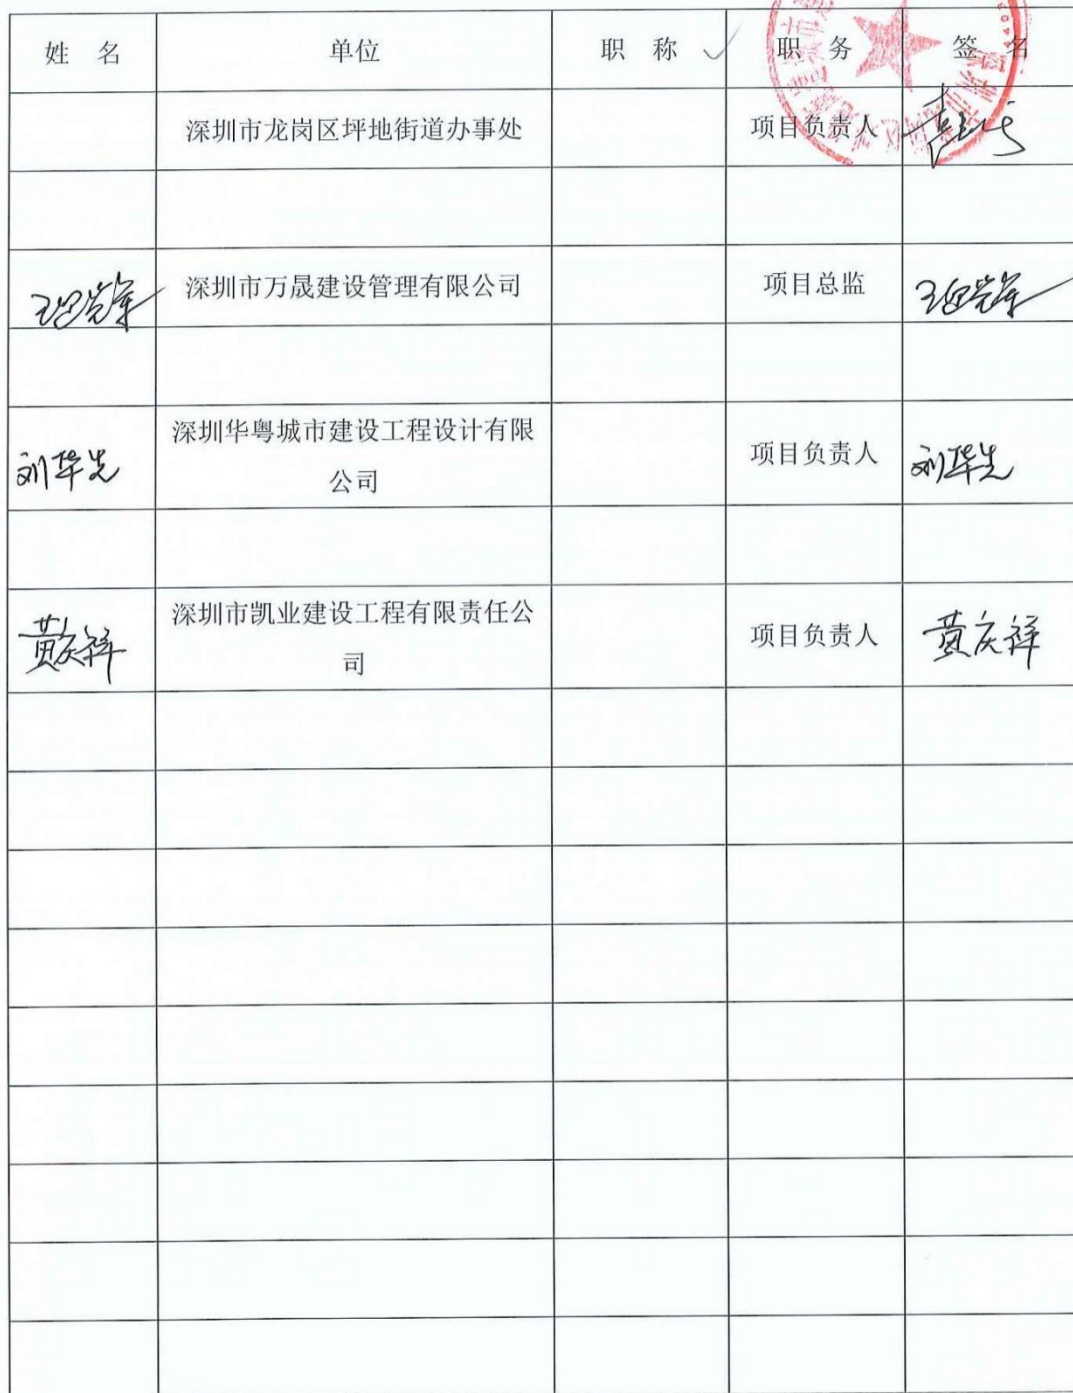 姓 名 单位 职 称 职 务 签 名
深圳市龙岗区坪地街道办事处 项目负责人
深圳市万晟建设管理有限公司 项目总监
刘华先 深圳华粤城市建设工程设计有限 项目负责人 刘华先
公司
黄庆祥 深圳市凯业建设工程有限责任公 项目负责人 黄庆祥
司